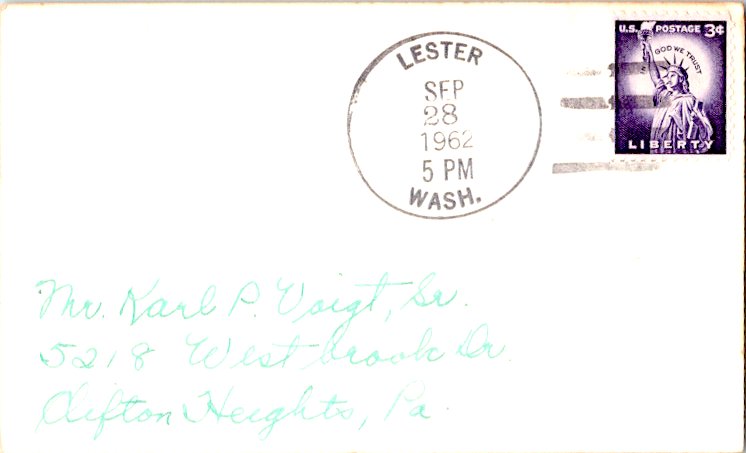 LESTER
SEP
28
1962
5 PM
WASH.
U.S. POSTAGE 3¢
IN GOD WE TRUST
LIBERTY
Mr. Karl P. Voigt, Sr.
5218 Westbrook Dr.
Clifton Heights, Pa.